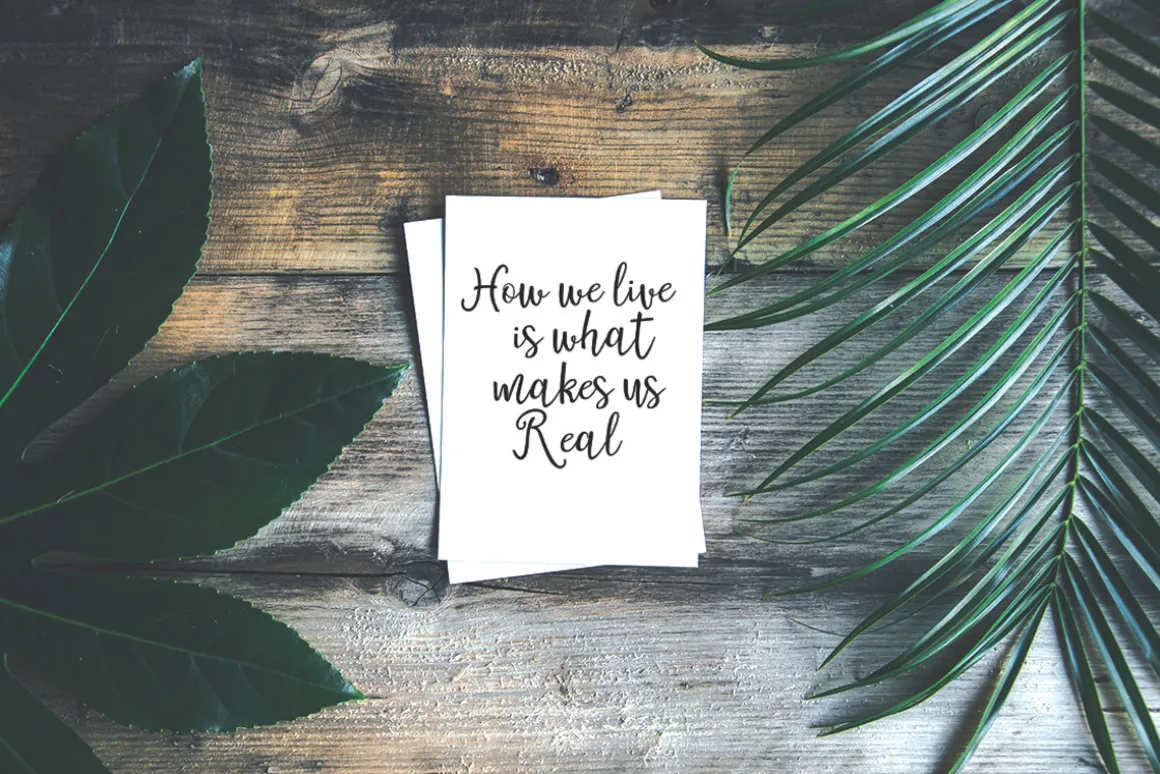 How we live
is what
makes us
Real